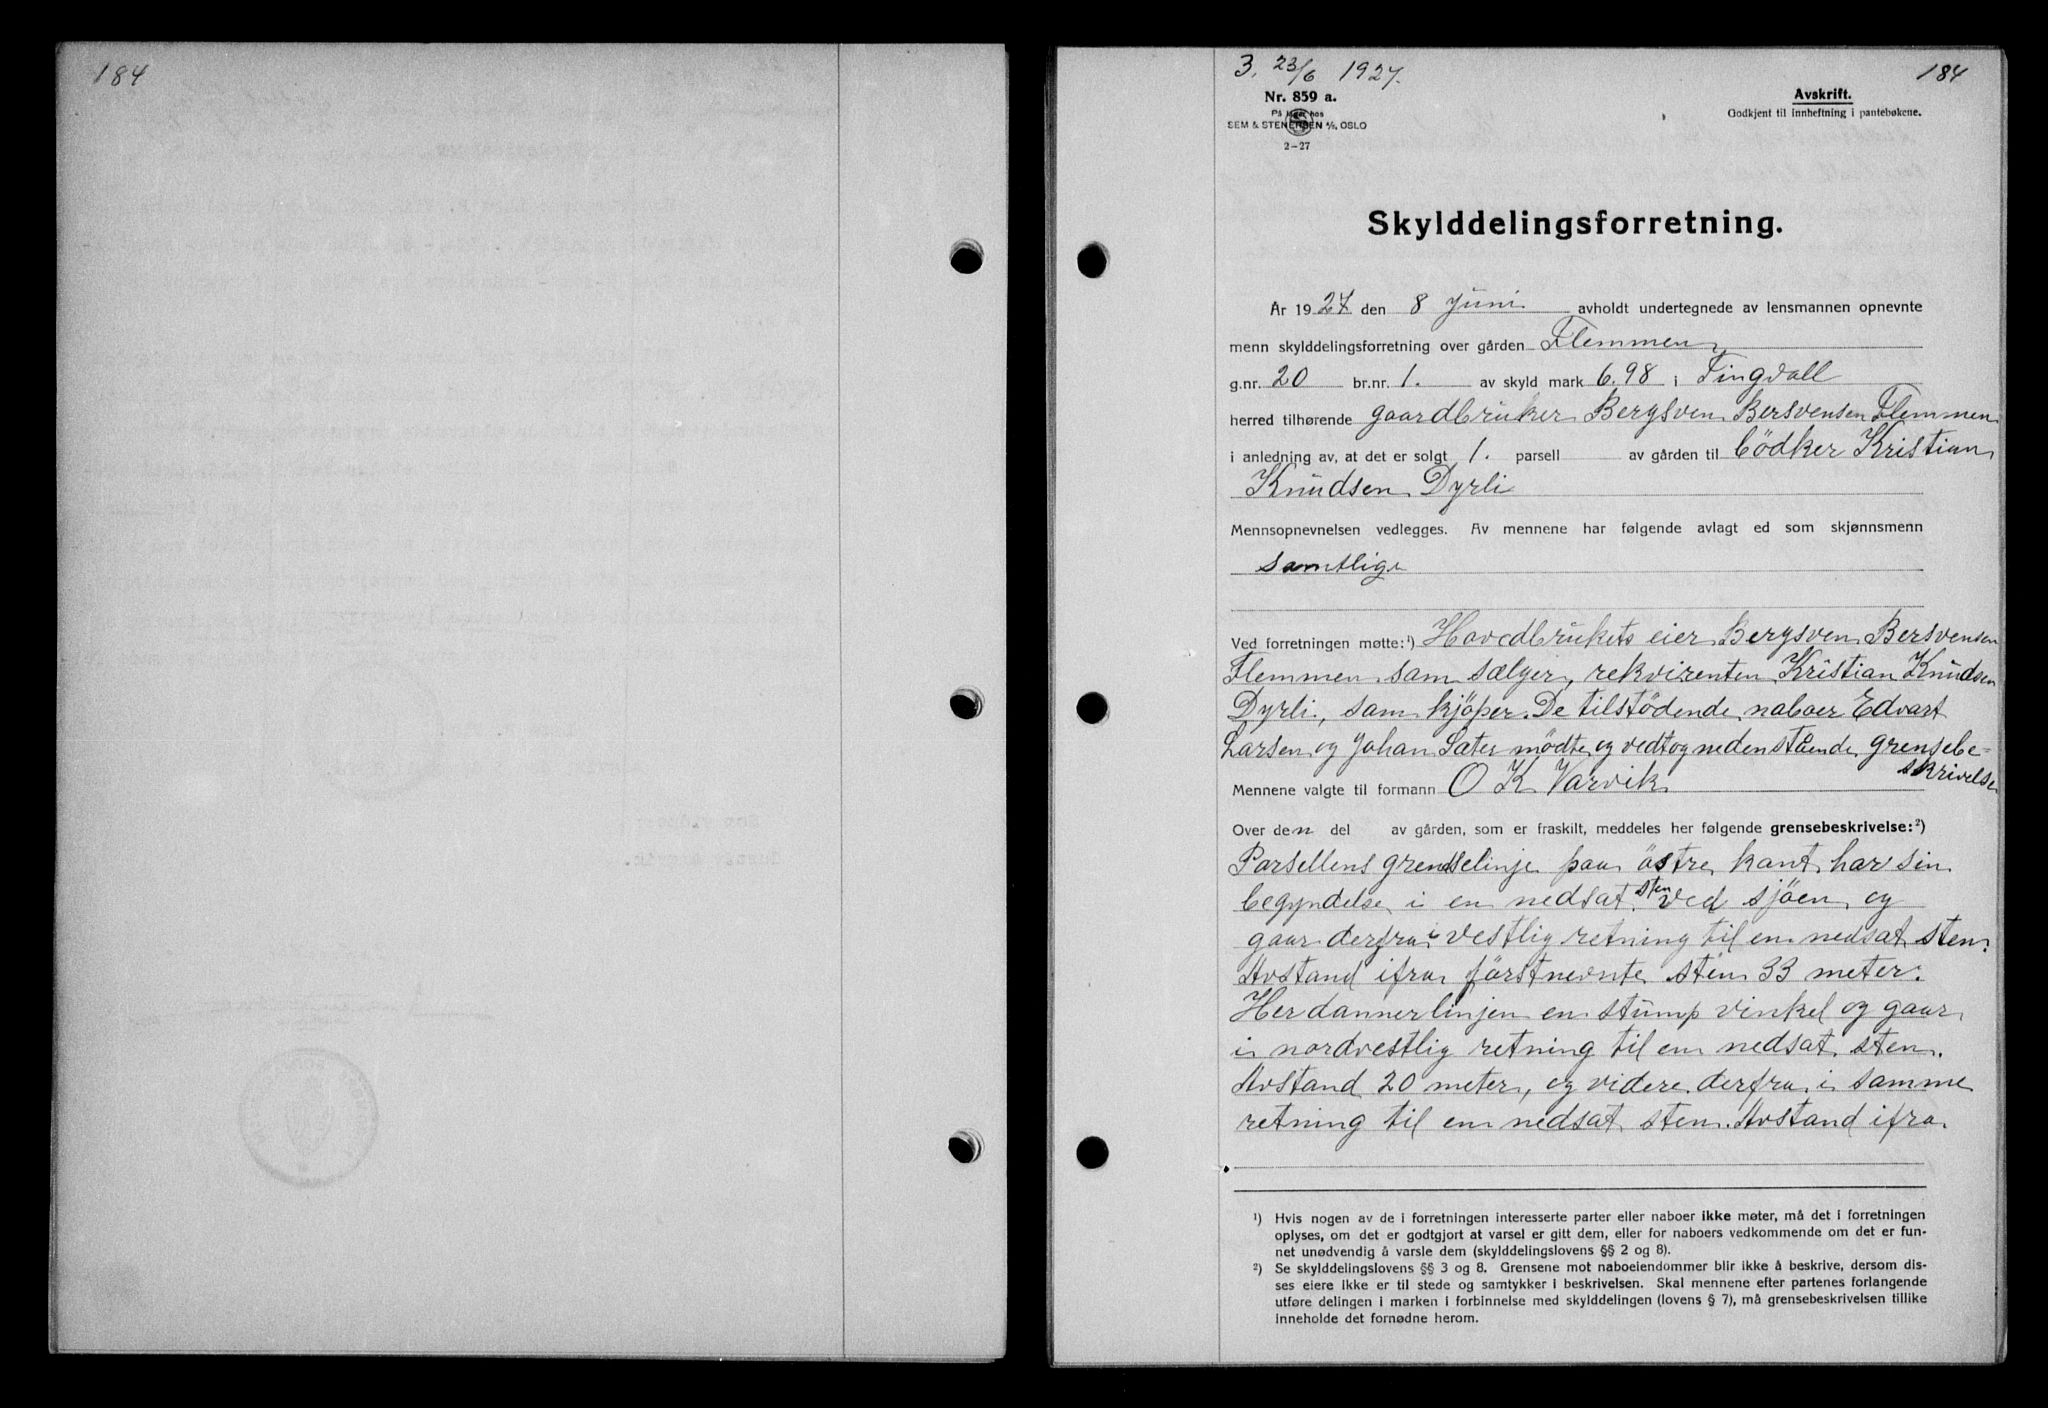 184
3, 23/6 1927.
184
Nr. 859 a.
Avskrift.
På lager hos
Godkjent til innheftning i pantebøkene.
SEM & STENERSEN A/S, OSLO
2-27
Skylddelingsforretning.
År 1927 den 8 juni avholdt undertegnede av lensmannen opnevnte
menn skylddelingsforretning over gården Flemmen
g.nr. 20 br.nr. 1. av skyld mark 6.98 i Tingvoll
herred tilhørende gaardbruker Bergsven Bersvensen Flemmen
i anledning av, at det er solgt 1. parsell av gården til bödker Kristian
Knudsen Dyrli
Mennsopnevnelsen vedlegges. Av mennene har følgende avlagt ed som skjønnsmenn
samtlige
Ved forretningen møtte:¹) Hovedbrukets eier Bergsven Bersvensen
Flemmen som sælger, rekvirenten Kristian Knudsen
Dyrli, som kjöper. De tilstödende naboer Edvart
Larsen og Johan Sæter mödte og vedtog nedenstående grensebe-
skrivelse
Mennene valgte til formann O K Varvik
Over den del av gården, som er fraskilt, meddeles her følgende grensebeskrivelse:²)
Parsellens grenselinje paa östre kant har sin
begyndelse i en nedsat sten ved sjöen og
gaar derfra i vestlig retning til en nedsat sten.
Avstand ifra förstnevnte sten 33 meter.
Her danner linjen en stump vinkel og gaar
i nordvestlig retning til en nedsat sten.
Avstand 20 meter, og videre derfra i samme
retning til en nedsat sten. Avstand ifra
¹) Hvis nogen av de i forretningen interesserte parter eller naboer ikke møter, må det i forretningen
oplyses, om det er godtgjort at varsel er gitt dem, eller for naboers vedkommende om det er fun-
net unødvendig å varsle dem (skylddelingslovens §§ 2 og 8).
²) Se skylddelingslovens §§ 3 og 8. Grensene mot naboeiendommer blir ikke å beskrive, dersom dis-
ses eiere ikke er til stede og samtykker i beskrivelsen. Skal mennene efter partenes forlangende
utføre delingen i marken i forbinnelse med skylddelingen (lovens § 7), må grensebeskrivelsen tillike
inneholde det fornødne herom.